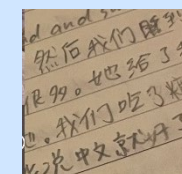 d and s
然后我们
很多。她给了
。我们吃了
说中文就